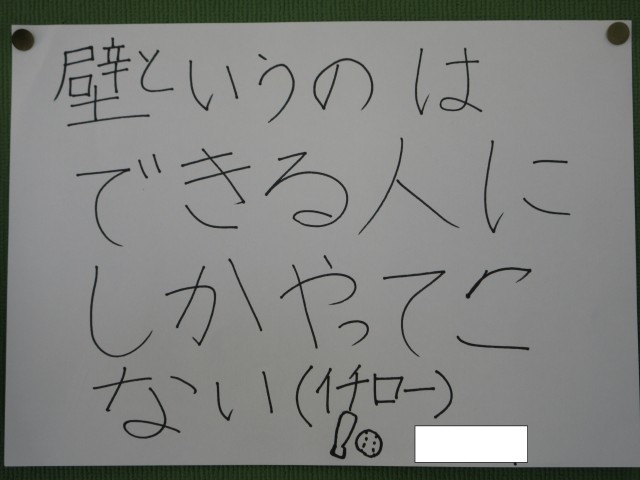 壁というのは
できる人に
しかやってこ
ない(イチロー)